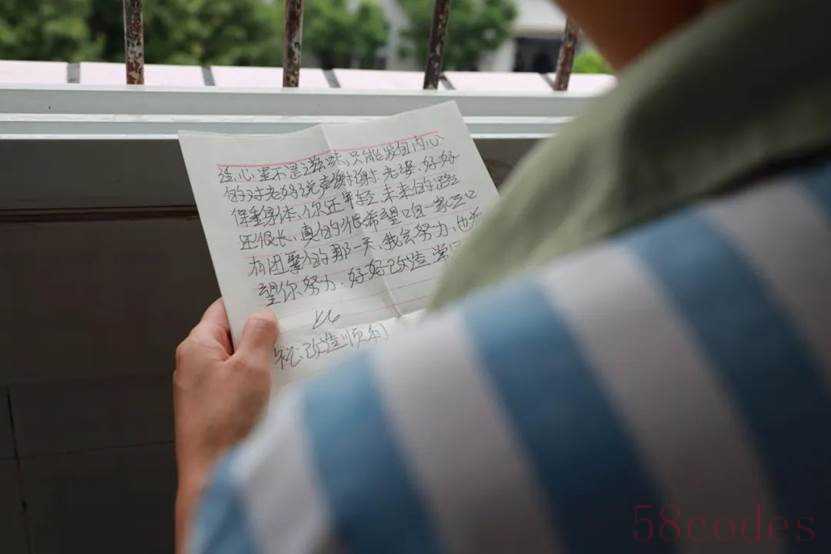 心里不是滋味,只能发自内心
的对老婆说声谢谢老婆,好好
保重身体,你还年轻,未来的路
还很长,真的很希望咱一家三口
有团聚的那一天,我会努力,也希
望你努力,好好改造,
此
祝改造顺利
58codes